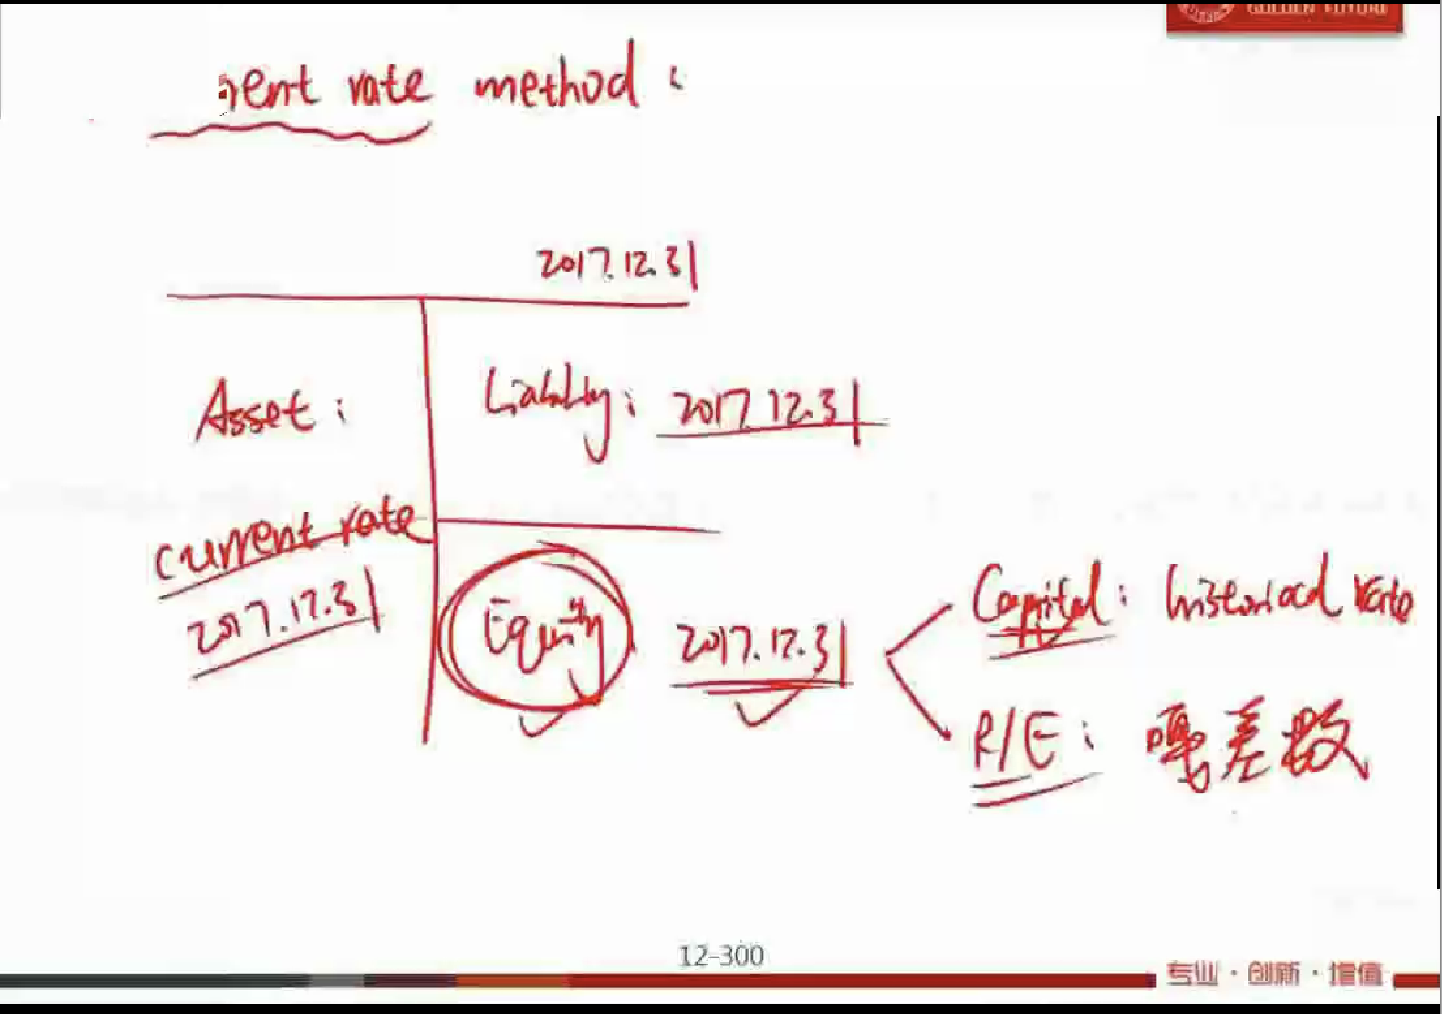 GOLDEN FUTURE
rent rate method :
2017.12.31
Asset :
Liability : 2017.12.31
current rate
2017.12.31
Equity 2017.12.31
Capital : historical rate
R/E : 差数
12-300
专业 · 创新 · 增值